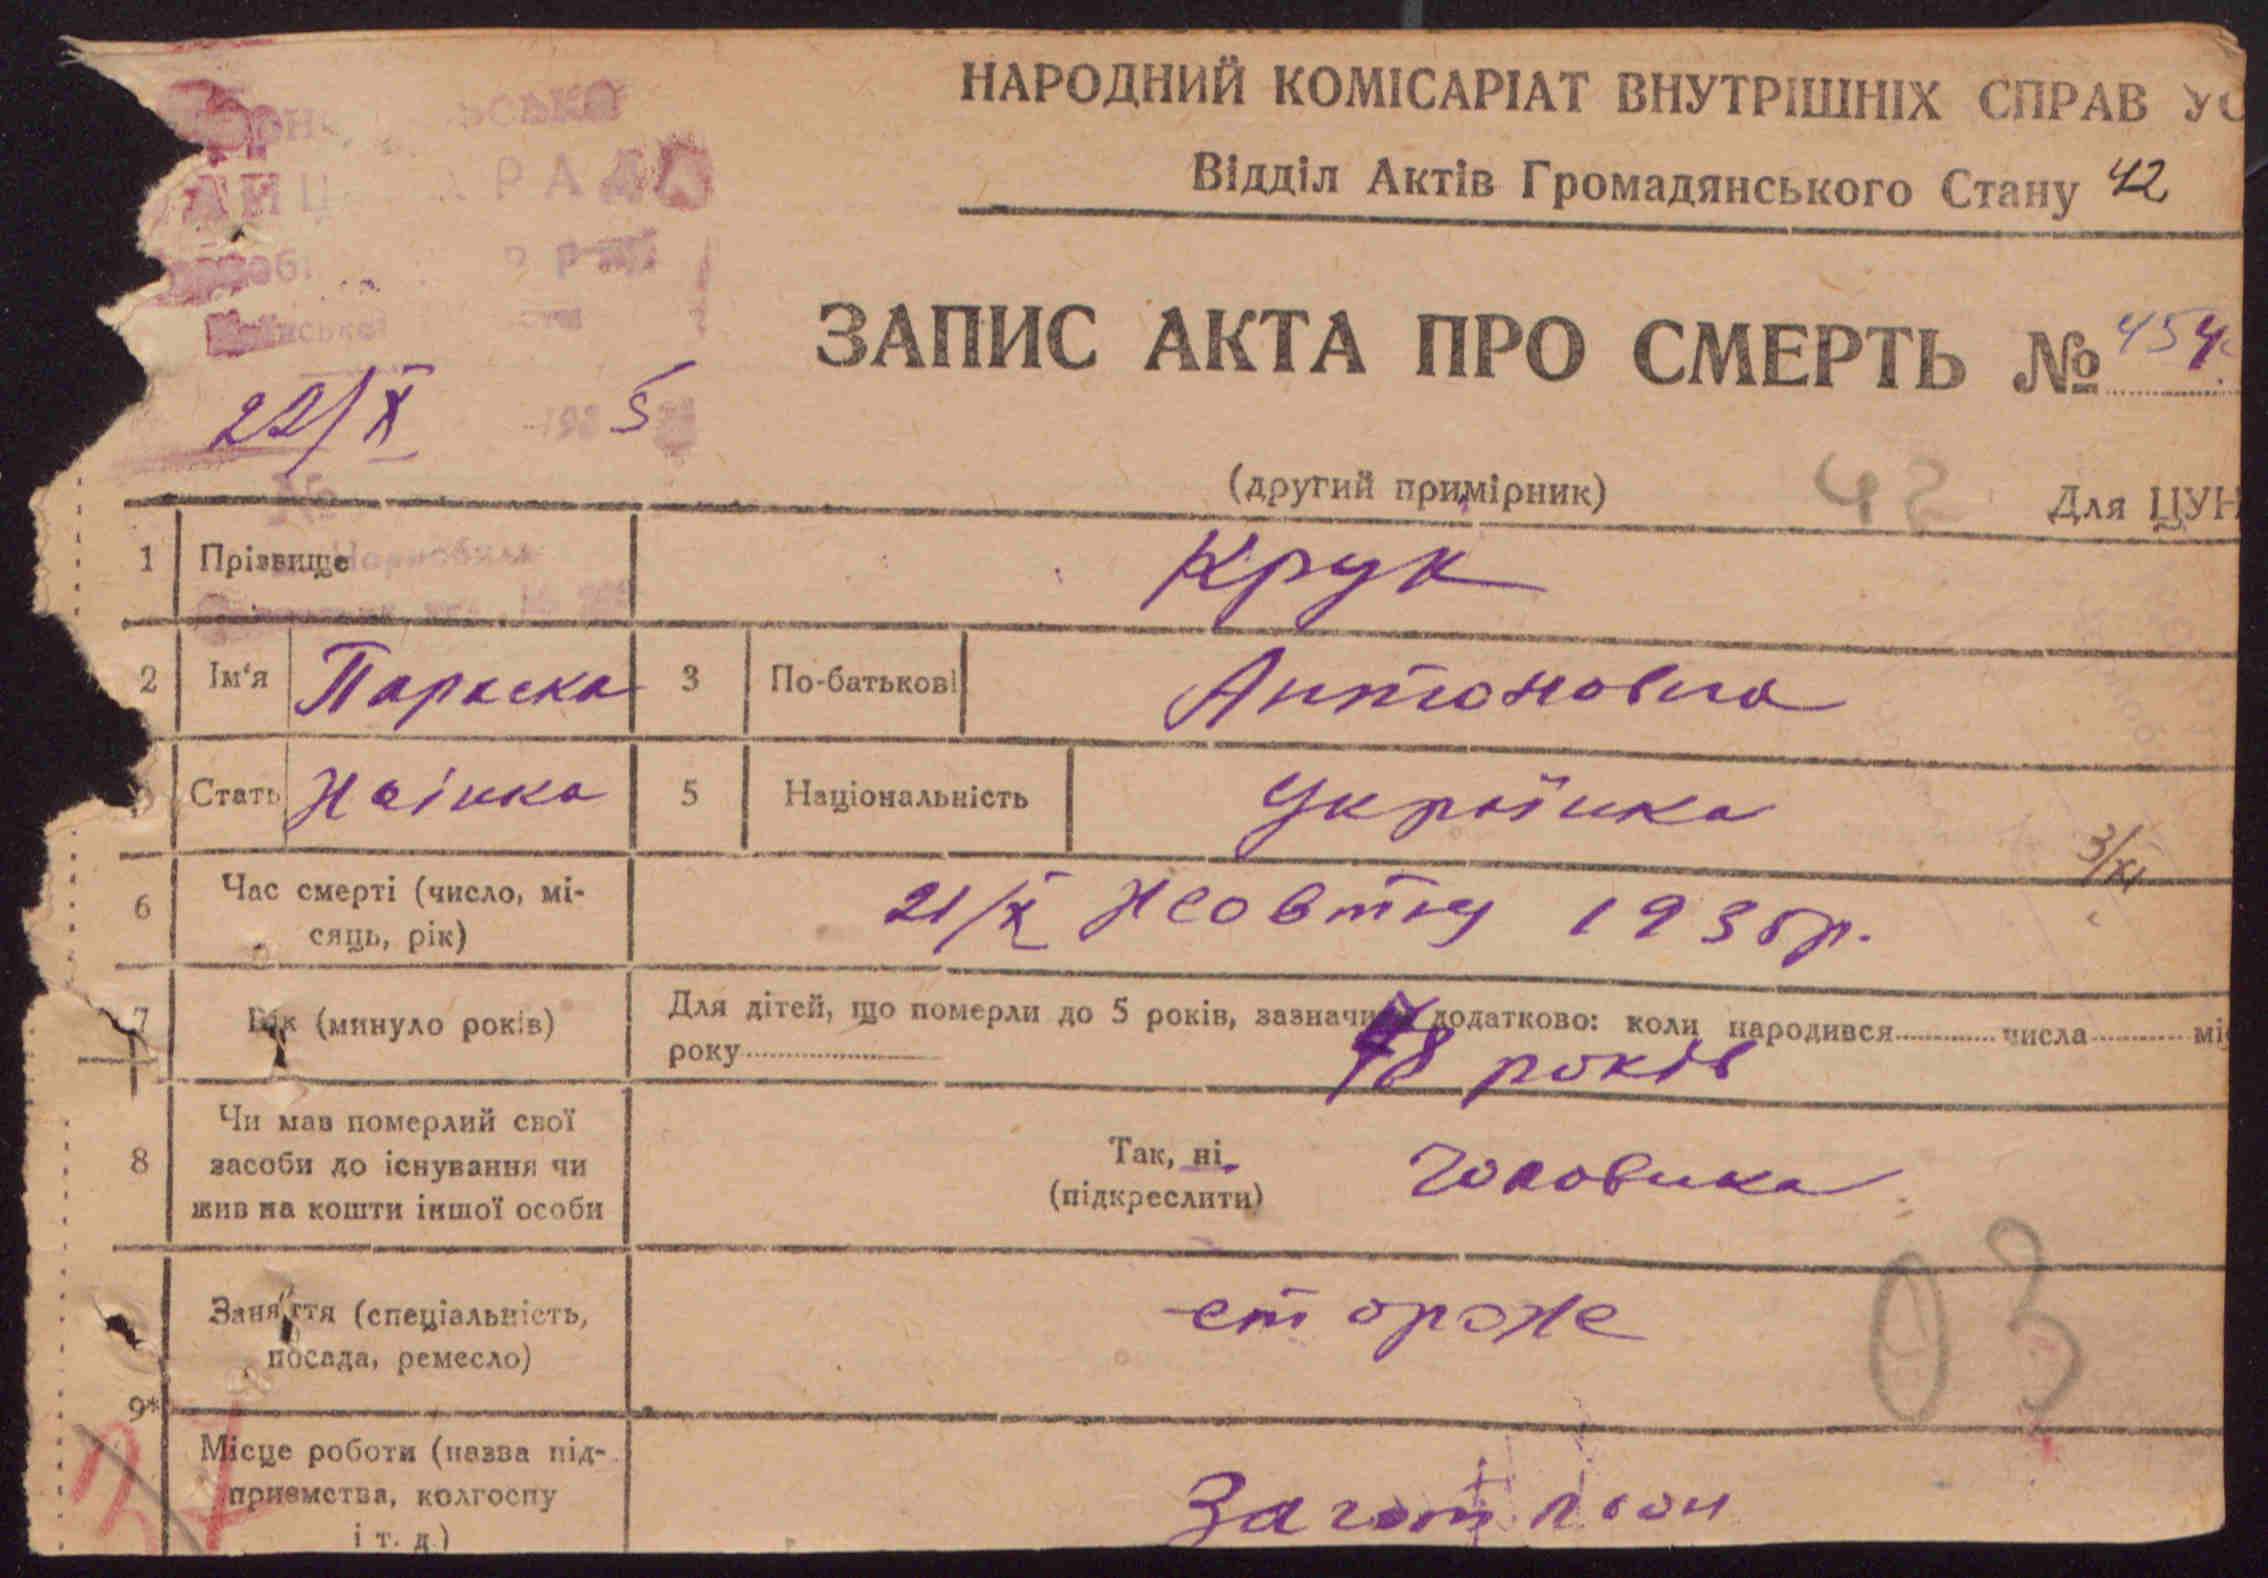 НАРОДНИЙ КОМІСАРІАТ ВНУТРІШНІХ СПРАВ УС
Відділ Актів Громадянського Стану 42
РАДА
ЗАПИС АКТА ПРО СМЕРТЬ № 454
22/X 193 5
(другий примірник) 42 Для ЦУН
№
1 Прізвище Крук
2 Ім'я Параска 3 По-батькові Антоновна
Стать Жінка 5 Національність Українка
3/XI
6 Час смерті (число, мі-
сяць, рік) 21/X Жовтня 1935р.
7 Вік (минуло років) Для дітей, що померли до 5 років, зазначити додатково: коли народився числа мі
року
78 років
8 Чи мав померлий свої
засоби до існування чи
жив на кошти іншої особи
Так, ні
(підкреслити) Чоловика
Заняття (спеціальність,
посада, ремесло) сторож
03
9*
Місце роботи (назва під-
приємства, колгоспу
і т. д.) Загот льон